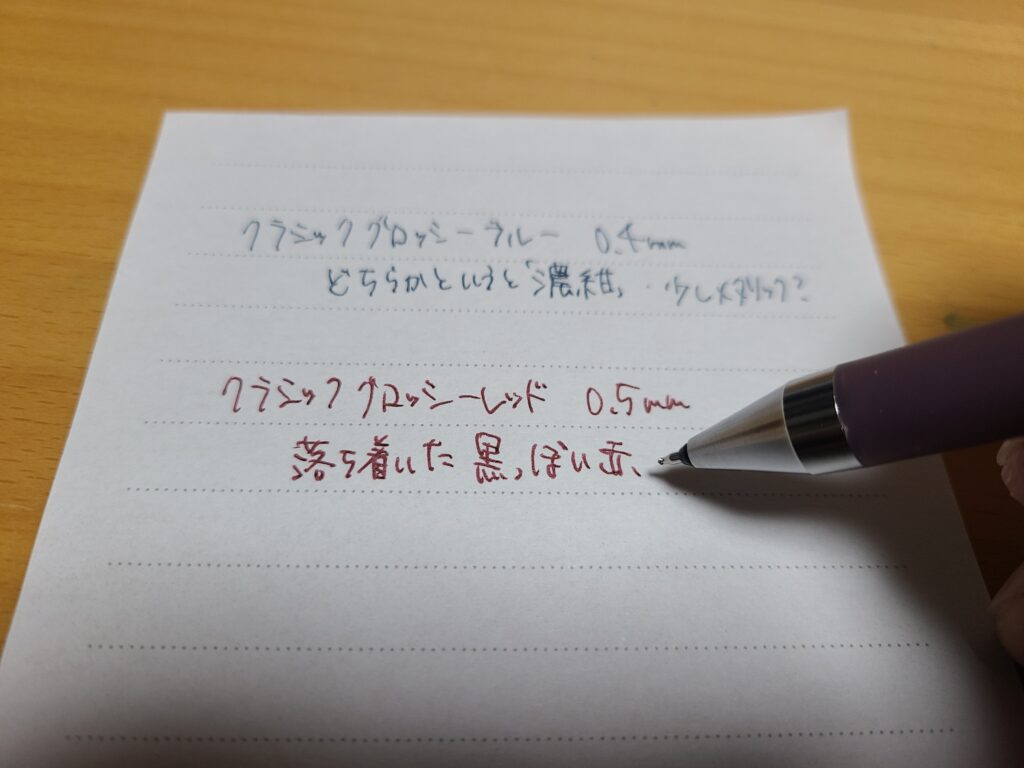 クラシックグロッシーブルー 0.4mm
どちらかというと「濃紺」・少しメタリック?
クラシックグロッシーレッド 0.5mm
落ち着いた黒っぽい赤、